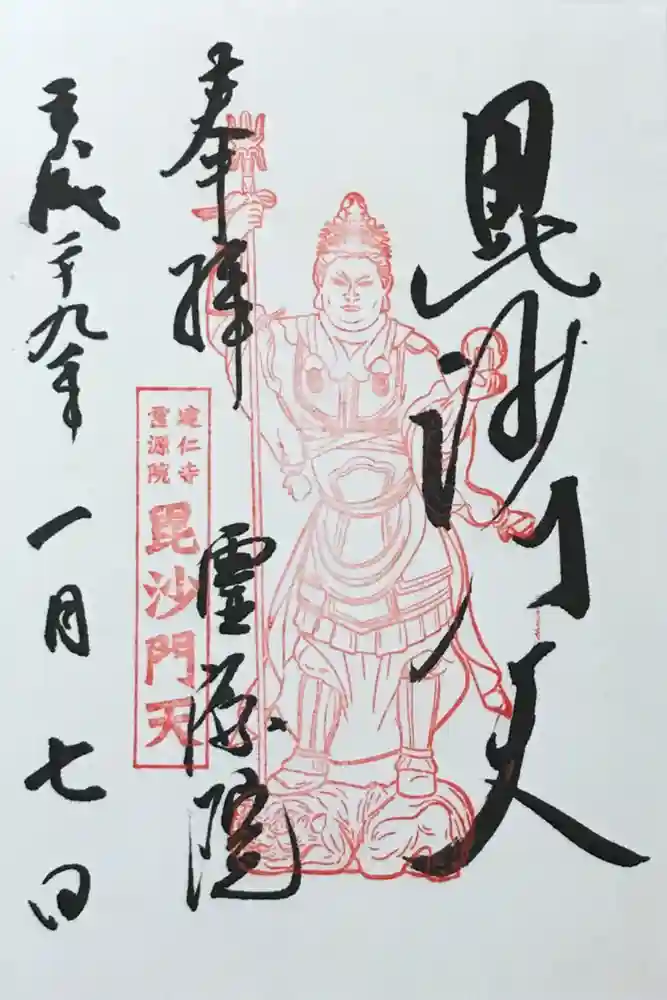 毘沙門天
奉拝
霊源院
建仁寺
霊源院
毘沙門天
平成二十九年一月七日